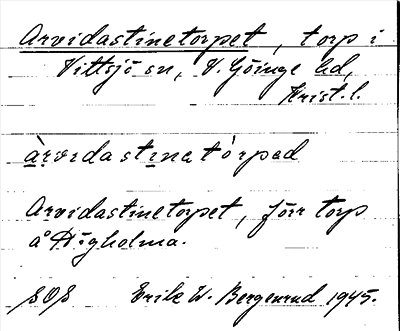 Arvidastinetorpet, torp i
Vittsjö sn, V. Göinge hd,
Krist. l.
àrvidastinetòrpəd
Arvidastinetorpet, förr torp
å Digholma.
SOS Erik W. Bergenrud 1945.